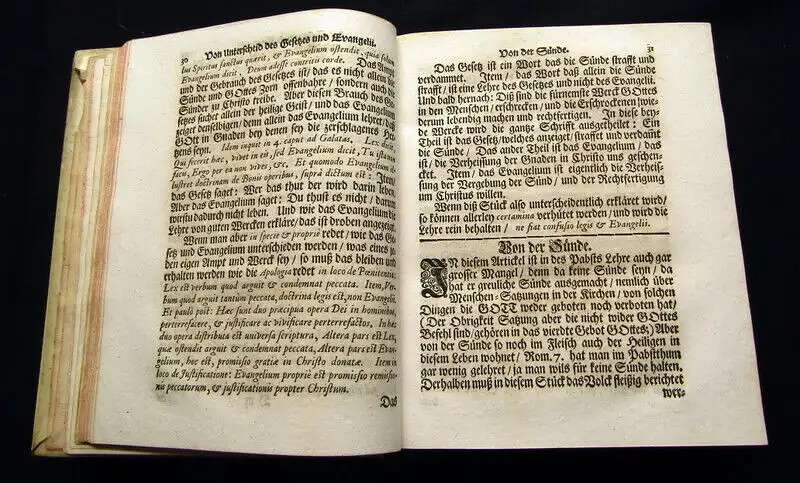 30 Von Unterscheid des Gesetzes und Evangelii.
tus Spiritus sanctus quærit, & Evangelium ostendit, quia solum
Evangelium dicit, Deum adesse contritis corde. Das Ampt
und der Gebrauch des Gesetzes ist/ das es nicht allein die
Sünde und GOttes Zorn offenbahre/ sondern auch die
Sünder zu Christo treibe. Aber diesen Brauch des Ge-
setzes suchet allein der heilige Geist/ und das Evangelium
zeiget denselbigen/ denn allein das Evangelium lehret/ daß
GOtt in Gnaden bey denen sey die zerschlagenes Her-
tzens seyn. Idem inquit in 4. caput ad Galatas. Lex dicit,
Qui fecerit hæc, vivet in eis, sed Evangelium dicit, Tu ista non
facis, Ergo per ea non vives, &c. Et quomodo Evangelium il-
lustret doctrinam de Bonis operibus, suprà dictum est: Item/
das Gesetz saget: Wer das thut der wird darin leben/
Aber das Evangelium saget: Du thust es nicht/ darum
wirstu dadurch nicht leben. Und wie das Evangelium die
Lehre von guten Wercken erkläre/ das ist droben angezeiget.
Wenn man aber in specie & propriè redet/ wie das Ge-
setz und Evangelium unterschieden werden/ was eines je-
den eigen Ampt und Werck sey/ so muß das bleiben und
erhalten werden wie die Apologia redet in loco de Pœnitentia:
Lex est verbum quod arguit & condemnat peccata. Item, Ver-
bum quod arguit tantùm peccata, doctrina legis est, non Evangelii.
Et paulò pòst: Hæc sunt duo præcipua opera Dei in hominibus,
perterrefacere, & justificare ac vivificare perterrefactos. In hæc
duo opera distributa est universa scriptura, Altera pars est Lex,
quæ ostendit arguit & condemnat peccata, Altera pars est Evan-
gelium, hoc est, promissio gratiæ in Christo donatæ. Item in
loco de Justificatione: Evangelium propriè est promissio remissio-
nis peccatorum, & justificationis propter Christum.
Das
Von der Sünde. 31
Das Gesetz ist ein Wort das die Sünde strafft und
verdammet. Item/ das Wort daß allein die Sünde
strafft/ ist eine Lehre des Gesetzes und nicht des Evangelii.
Und bald hernach: Diß sind die fürnemste Werck GOttes
in den Menschen/ erschrecken/ und die Erschrockenen wie-
derum lebendig machen und rechtfertigen. In diese bey-
de Wercke wird die gantze Schrifft ausgetheilet: Ein
Theil ist das Gesetz/ welches anzeiget/ straffet und verdamt
die Sünde/ Das ander Theil ist das Evangelium/ das
ist/ die Verheissung der Gnaden in Christo uns geschen-
cket. Item/ das Evangelium ist eigentlich die Verheis-
sung der Vergebung der Sünd/ und der Rechtfertigung
um Christus willen.
Wenn diß Stück also unterscheidentlich erkläret wird/
so können allerley certamina verhütet werden/ und wird die
Lehre rein behalten/ ne fiat confusio legis & Evangelii.
Von der Sünde.
IN diesem Artickel ist in des Pabsts Lehre auch gar
grosser Mangel/ denn da keine Sünde seyn/ da
hat er greuliche Sünde ausgemacht/ nemlich über
Menschen-Satzungen in der Kirchen/ von solchen
Dingen die GOTT weder geboten noch verboten hat/
(Der Obrigkeit Satzung aber die nicht wider GOttes
Befehl sind/ gehören in das vierdte Gebot GOttes;) Aber
von der Sünde so noch im Fleisch auch der Heiligen in
diesem Leben wohnet/ Rom. 7. hat man im Pabstthum
gar wenig gelehret/ ja man wils für keine Sünde halten.
Derhalben muß in diesem Stück das Volck fleißig berichtet
wer-